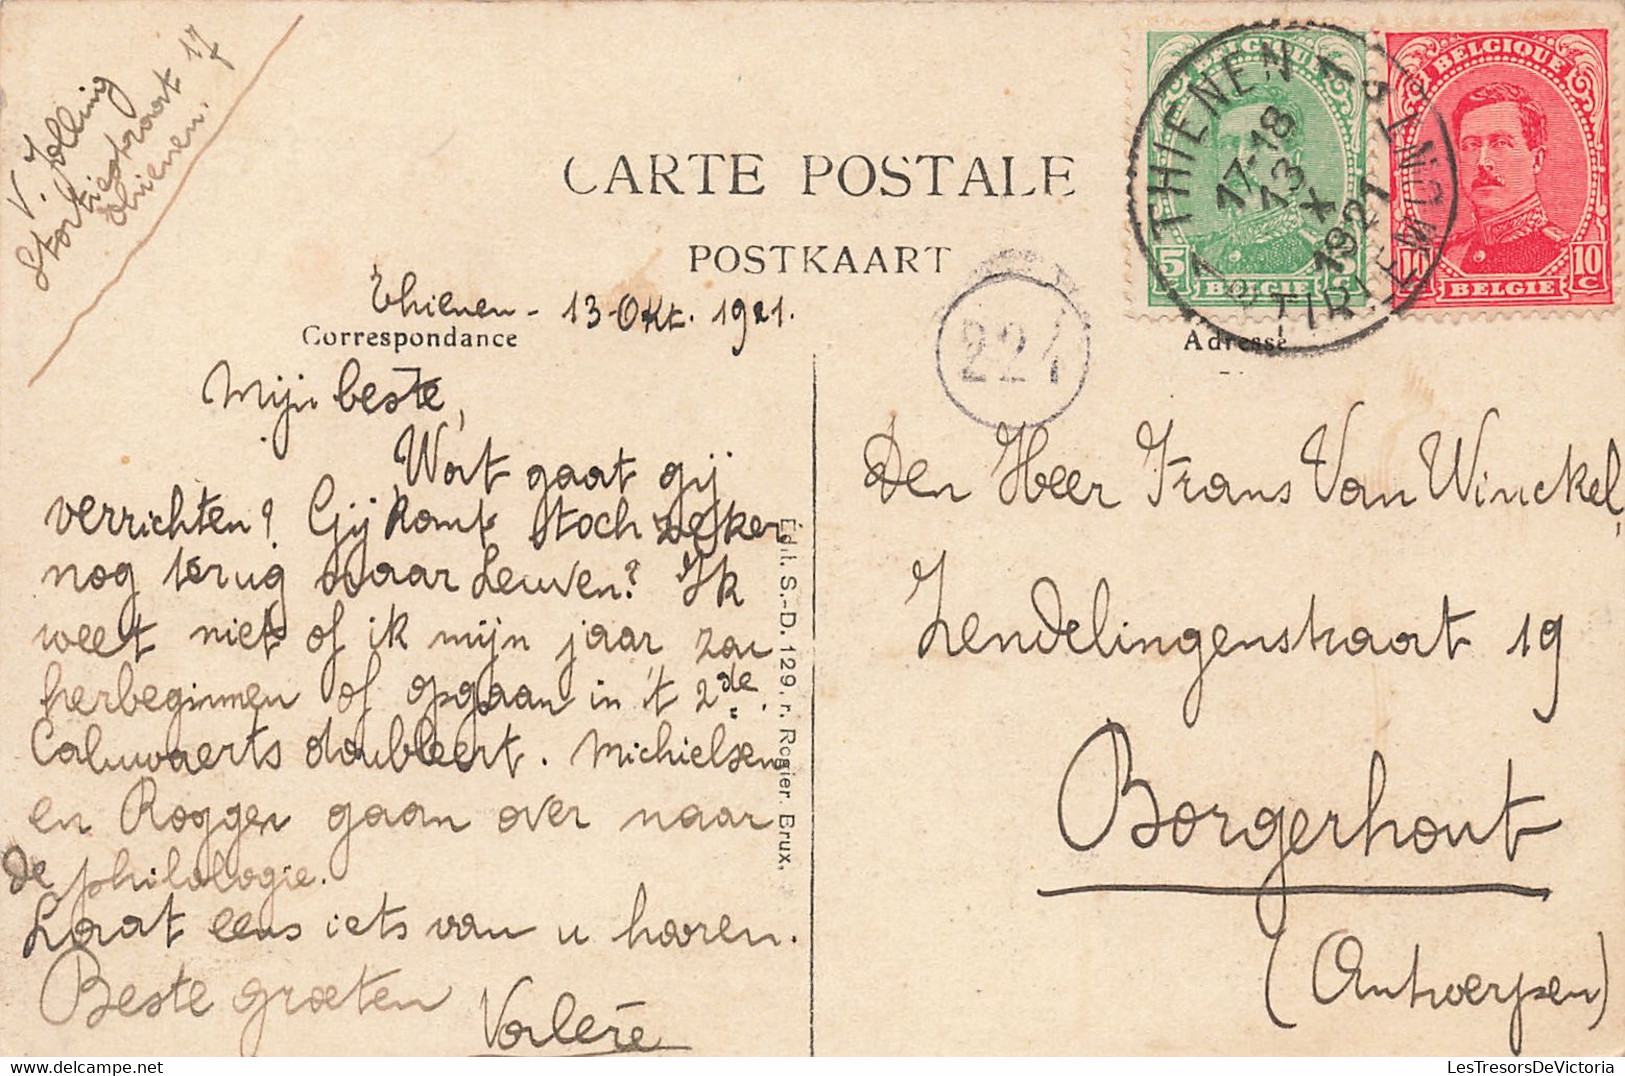 V. Jolling
Stortiestraat 17
Thienen.
CARTE POSTALE
POSTKAART
Thienen - 13 Okt. 1921.
Correspondance
Mijn beste,
Wat gaat gij
verrichten? Gij komt toch zeker
nog terug naar Leuven? Ik
weet niet of ik mijn jaar zal
herbeginnen of opgaan in 't 2de.
Caluwaerts doubleert. Michielsen
en Roggen gaan over naar
de philologie.
Laat eens iets van u hooren.
Beste groeten
Valère
Édit. S.-D. 129. r. Rogier. Brux.
224
BELGIQUE
5
BELGIE
BELGIQUE
10 10
C
BELGIE
1 THIENEN 1
17-18
13
X
1921
TIRLEMONT
Adresse
Den Heer Frans Van Winckel,
Zendelingenstraat 19
Borgerhout
(Antwerpen)
LesTresorsDeVictoria